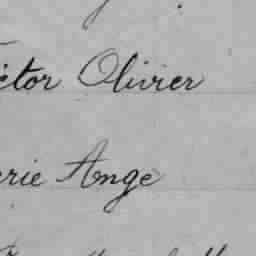 ctor Olivier
rie Ange